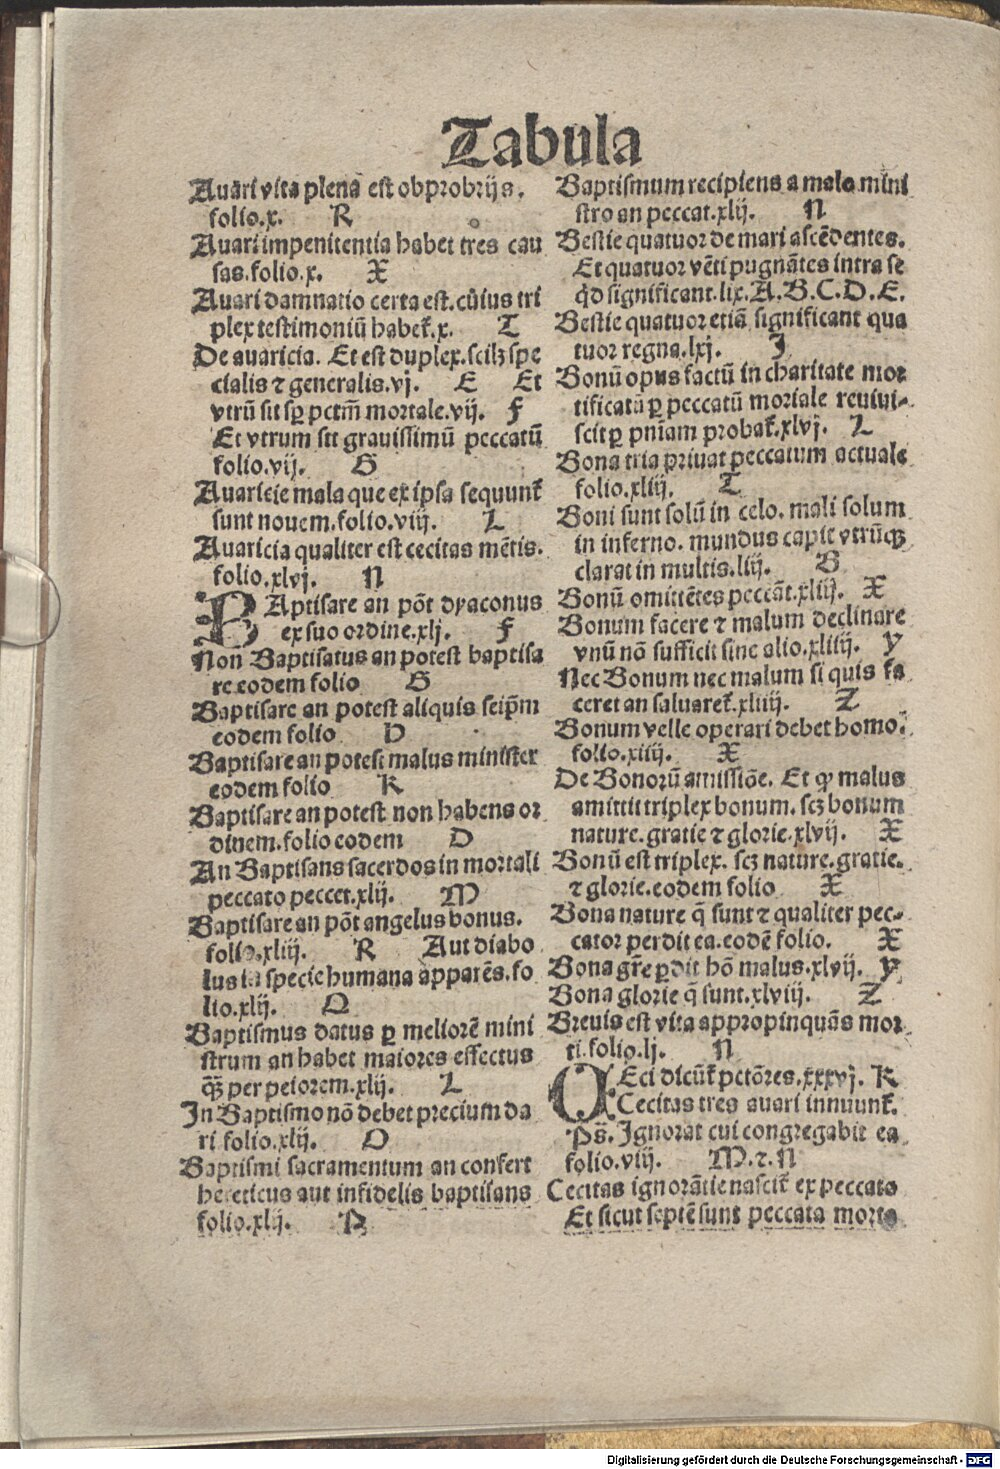 Tabula
Auari vita plena est obprobrijs.
folio.x. R
Auari impenitentia habet tres cau
sas.folio.x. X
Auari damnatio certa est.cuius tri
plex testimoniū habet᷑.x. T
De auaricia. Et est duplex.scilꝫ spe
cialis ⁊ generalis.vj. E Et
vtrū sit sꝑ pctm̄ mortale.vij. F
Et vtrum sit grauissimū peccatū
folio.vij. G
Auaricie mala que ex ipsa sequunt᷑
sunt nouem.folio.viij. L
Auaricia qualiter est cecitas mētis.
folio.xlvj. N
BAptisare an pōt dyaconus
ex suo ordine.xlj. F
Non Baptisatus an potest baptisa
re.eodem folio G
Baptisare an potest aliquis seip̄m
eodem folio H
Baptisare an potest malus minister
eodem folio K
Baptisare an potest non habens or
dinem.folio eodem O
An Baptisans sacerdos in mortali
peccato peccet.xlij. M
Baptisare an pōt angelus bonus.
folio.xliij. R Aut diabo
lus in specie humana apparēs.fo
lio.xlij. Q
Baptismus datus ꝑ meliorē mini
strum an habet maiores effectus
qꝫ̄ per peiorem.xlij. L
In Baptismo nō debet precium da
ri folio.xlij. O
Baptismi sacramentum an confert
hereticus aut infidelis baptisans
folio.xlij. P
Baptismum recipiens a malo mini
stro an peccat.xlij. N
Bestie quatuor de mari ascēdentes.
Et quatuor vēti pugnātes intra se
qd̄ significant.lix.A.B.C.D.E.
Bestie quatuor etiā significant qua
tuor regna.lxj. J
Bonū opus factū in charitate mor
tificatū ꝑ peccatū mortale reuiui-
scit ꝑ pn̄iam probat᷑.xlvj. L
Bona tria priuat peccatum actuale
folio.xliij. T
Boni sunt solū in celo. mali solum
in inferno. mundus capit vtrūqꝫ
clarat in multis.liij. B
Bonū omittētes peccāt.xliij. X
Bonum facere ⁊ malum declinare
vnū nō sufficit sine alio.xliiij. Y
Nec Bonum nec malum si quis fa
ceret an saluaret᷑.xliiij. Z
Bonum velle operari debet homo.
folio.xiiij. X
De Bonorū amissiōe. Et qꝙ malus
amittit triplex bonum.scꝫ bonum
nature.gratie ⁊ glorie.xlvij. X
Bonū est triplex. scꝫ nature.gratie.
⁊ glorie.eodem folio X
Bona nature q̄ sunt ⁊ qualiter pec-
cator perdit ea.eodē folio. X
Bona gr̄e ꝑdit hō malus.xlvij. Y
Bona glorie q̄ sunt.xlviij. Z
Breuis est vita appropinquās mor
ti.folio.lj. N
CEci dicūt᷑ pctōres.xxxvj. K
Cecitas tres auari innuunt᷑.
Ps̄. Ignorat cui congregabit ea
folio.viij. M.⁊.N
Cecitas ignorātie nascit᷑ ex peccato
Et sicut septē sunt peccata morta
Digitalisierung gefördert durch die Deutsche Forschungsgemeinschaft - DFG